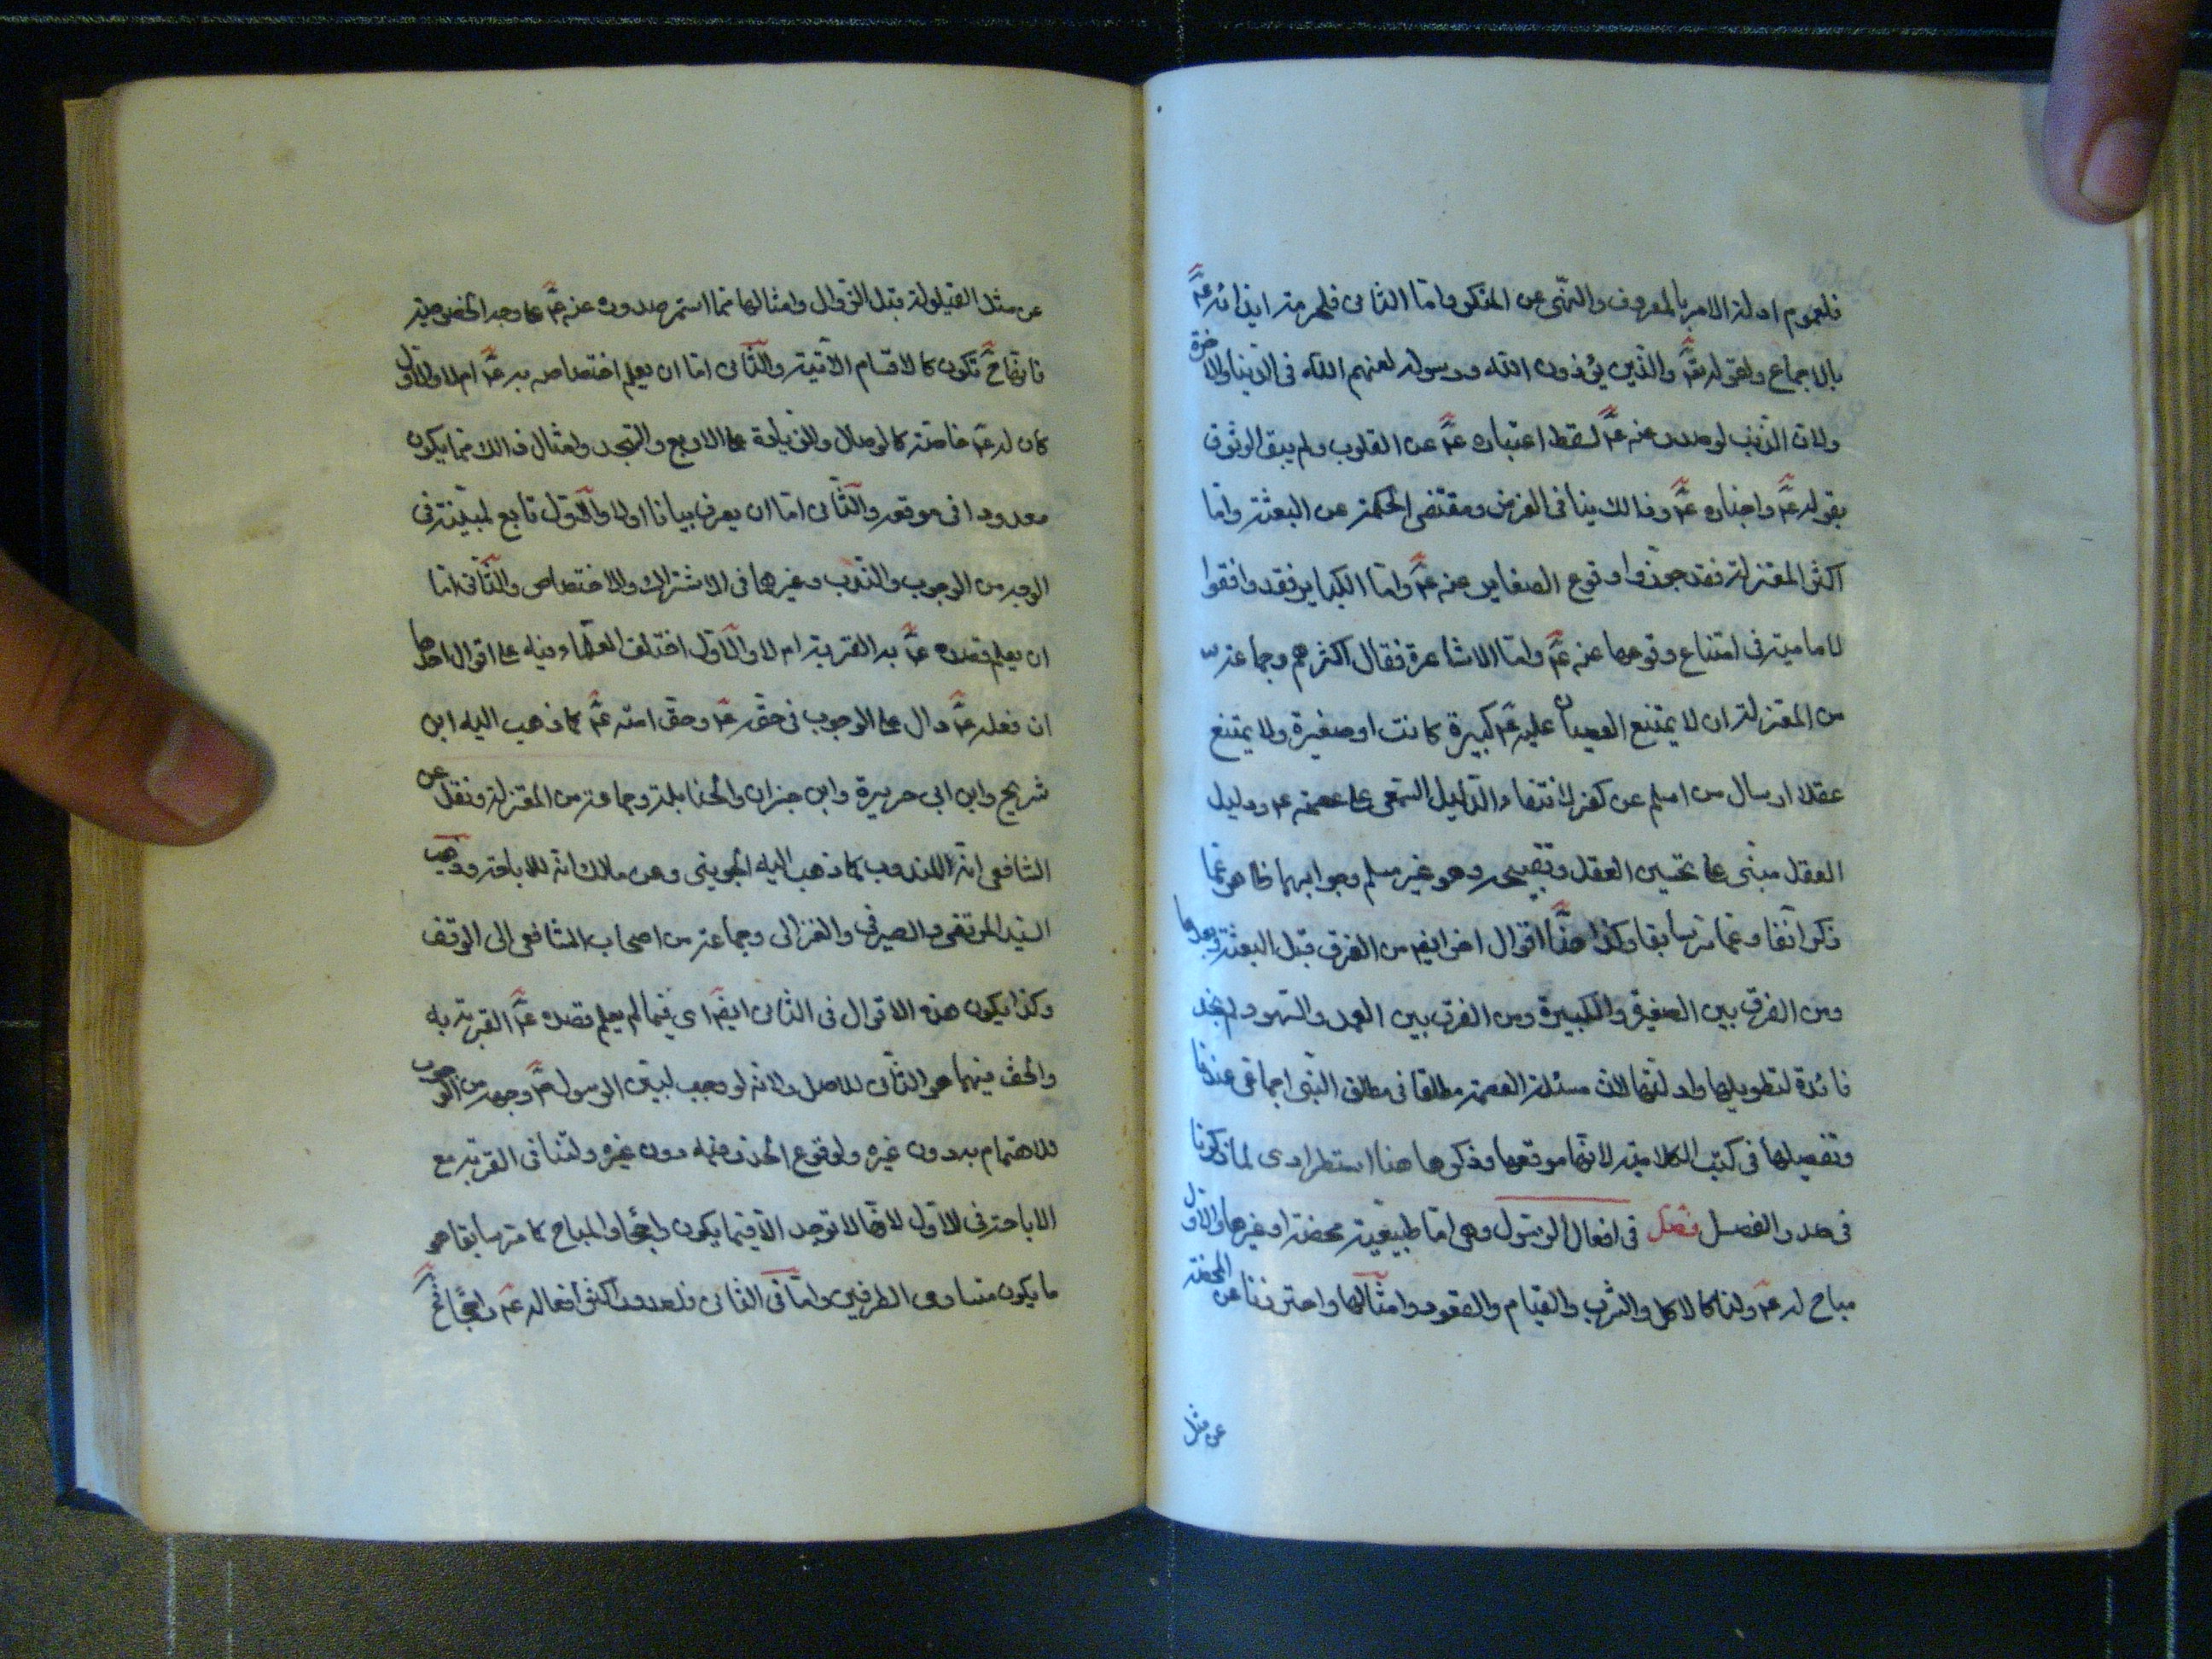 فلعموم ادلة الامر بالمعروف والنهى عن المنكر واما الثانى فلحرمة ايذائه عم
بالاجماع ولقوله تع والذين يؤذون الله ورسوله لعنهم الله فى الدنيا والاخرة
ولان الذنب لو صدر عنه عم لسقط اعتباره عم عن القلوب ولم يبق الوثوق
بقوله عم واخباره عم وذالك ينافى الغرض ومقتضى الحكمة عن البعثة واما
اكثر المعتزلة فقد جوزوا وقوع الصغاير عنه عم واما الكباير فقد وافقوا
للامامية فى امتناع وقوعها عنه عم واما الاشاعرة فقال اكثرهم وجماعة
من المعتزلة ان لا يمتنع العصيان عليه عم كبيرة كانت او صغيرة ولا يمتنع
عقلا ارسال من اسلم عن كفر لانتفاء الدليل السمعى على عصمته عم ودليل
العقل مبنى على تحسين العقل وتقبيحه وهو غير مسلم وجوابهما ظاهر مما
ذكر آنفا ومما مر سابقا وكذا هنا اقوال اخر ايضا من الفرق قبل البعثة وبعدها
ومن الفرق بين الصغيرة والكبيرة ومن الفرق بين العمد والسهو ولم نجد
فائدة لتطويلها وادلتها لان مسئلة العصمة مطلقا فى مطلق النبى اجماعى عندنا
وتفصيلها فى كتب الكلامية لانها موقعها وذكرها هنا استطرادى لما ذكرنا
فى صدر الفصل فصل فى افعال الرسول وهى اما طبيعية محضة او غيرها والاول
مباح له عم ولنا كالاكل والشرب والقيام والقعود وامثالها واحترزنا عن المحضة
عن مثل
عن مثل القيلولة قبل الزوال وامثالها مما استمر صدوره عنه عم على وجه الخصوصية
فانها ح تكون كالاقسام الآتية والثانى اما ان يعلم اختصاصه به عم ام لا والاول
كان له عم خاصة كالوصال والزيادة على الاربع والتهجد وامثال ذالك مما يكون
معدودا فى موقعه والثانى اما ان يعرف بيانا اولا والاول تابع لمبينه فى
الوجه من الوجوب والندب وغيرها فى الاشتراك والاختصاص والثانى اما
ان يعلم قصده عم به القربة ام لا والاول اختلف العلماء فيه على اقوال احدها
ان فعله عم دال على الوجوب فى حقه عم وحق امته عم كما ذهب اليه ابن
شريح وابن ابى هريرة وابن خيران والحنابلة وجماعة من المعتزلة ونقل عن
الشافعى انه للندب كما ذهب اليه الجوينى وعن مالك انه للاباحة وذهب
السيد المرتضى والصيرفى والغزالى وجماعة من اصحاب الشافعى الى الوقف
وكذا يكون هذه الاقوال فى الثانى ايضا اى فيما لم يعلم قصده عم القربة به
والحق فيهما هو الثانى للاصل ولانه لو وجب لبين الرسول عم وجوبه من الوجوب
للاهتمام به دون غيره ولوقوع الحذر منه دون غيره ولتنافى القربة مع
الاباحة فى الاول لانها لا توجد الا فيما يكون راجحا والمباح كما مر سابقا هو
ما يكون متساوى الطرفين واما فى الثانى فلصدور اكثر افعاله عم راجحا فح